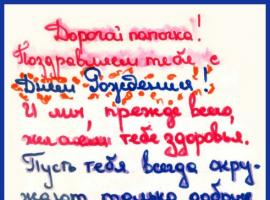 Дорогой папочка!
Поздравляем тебя с
Днём Рождения!
И мы, прежде всего,
желаем тебе здоровья.
Пусть тебя всегда окру-
жают только добрые